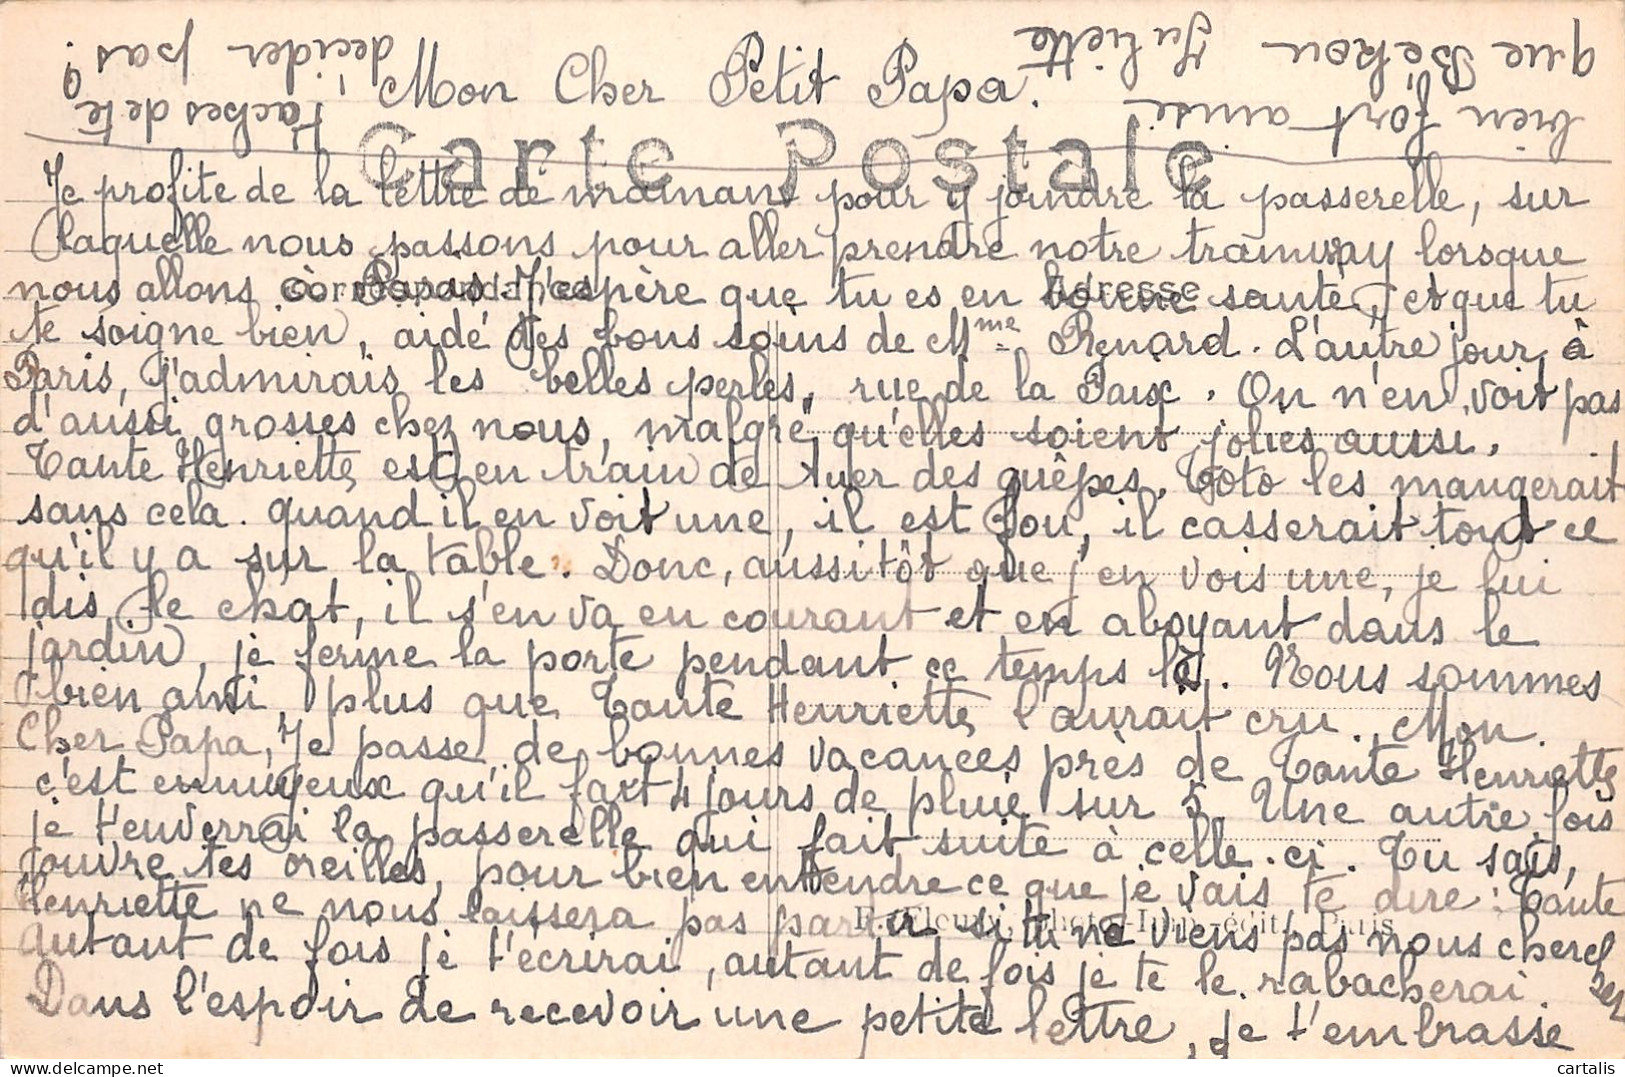 Mon Cher Petit Papa.
Carte Postale
Je profite de la lettre de maman pour y joindre la passerelle, sur
laquelle nous passons pour aller prendre notre tramway lorsque
nous allons à Paris. J'espère que tu es en bonne santé, et que tu
Correspondance
Adresse
te soigne bien, aidé des bons soins de Mme Renard. L'autre jour, à
Paris, j'admirais les belles perles, rue de la Paix. On n'en voit pas
d'aussi grosses chez nous, malgré qu'elles soient jolies aussi.
Tante Henriette est en train de tuer des guêpes. Toto les mangerait
sans cela. quand il en voit une, il est fou, il casserait tout ce
qu'il y a sur la table. Donc, aussitôt que j'en vois une, je lui
dis le chat, il s'en va en courant et en aboyant dans le
jardin, je ferme la porte pendant ce temps là. Nous sommes
bien ami, plus que Tante Henriette l'aurait cru. Mon
Cher Papa, Je passe de bonnes vacances près de Tante Henriette
c'est ennuyeux qu'il fait 4 jours de pluie sur 5. Une autre fois
je t'enverrai la passerelle qui fait suite à celle-ci. Tu sais,
ouvre tes oreilles, pour bien entendre ce que je vais te dire : Tante
Henriette ne nous laissera pas partir si tu ne viens pas nous chercher
E. Fleury, Phot-Imp. édit. Paris
autant de fois je t'écrirai, autant de fois je te le rabacherai.
Dans l'espoir de recevoir une petite lettre, je t'embrasse
bien fort ainsi
que Békou Juliette
Taches de te
décider pas!
cartalis.com